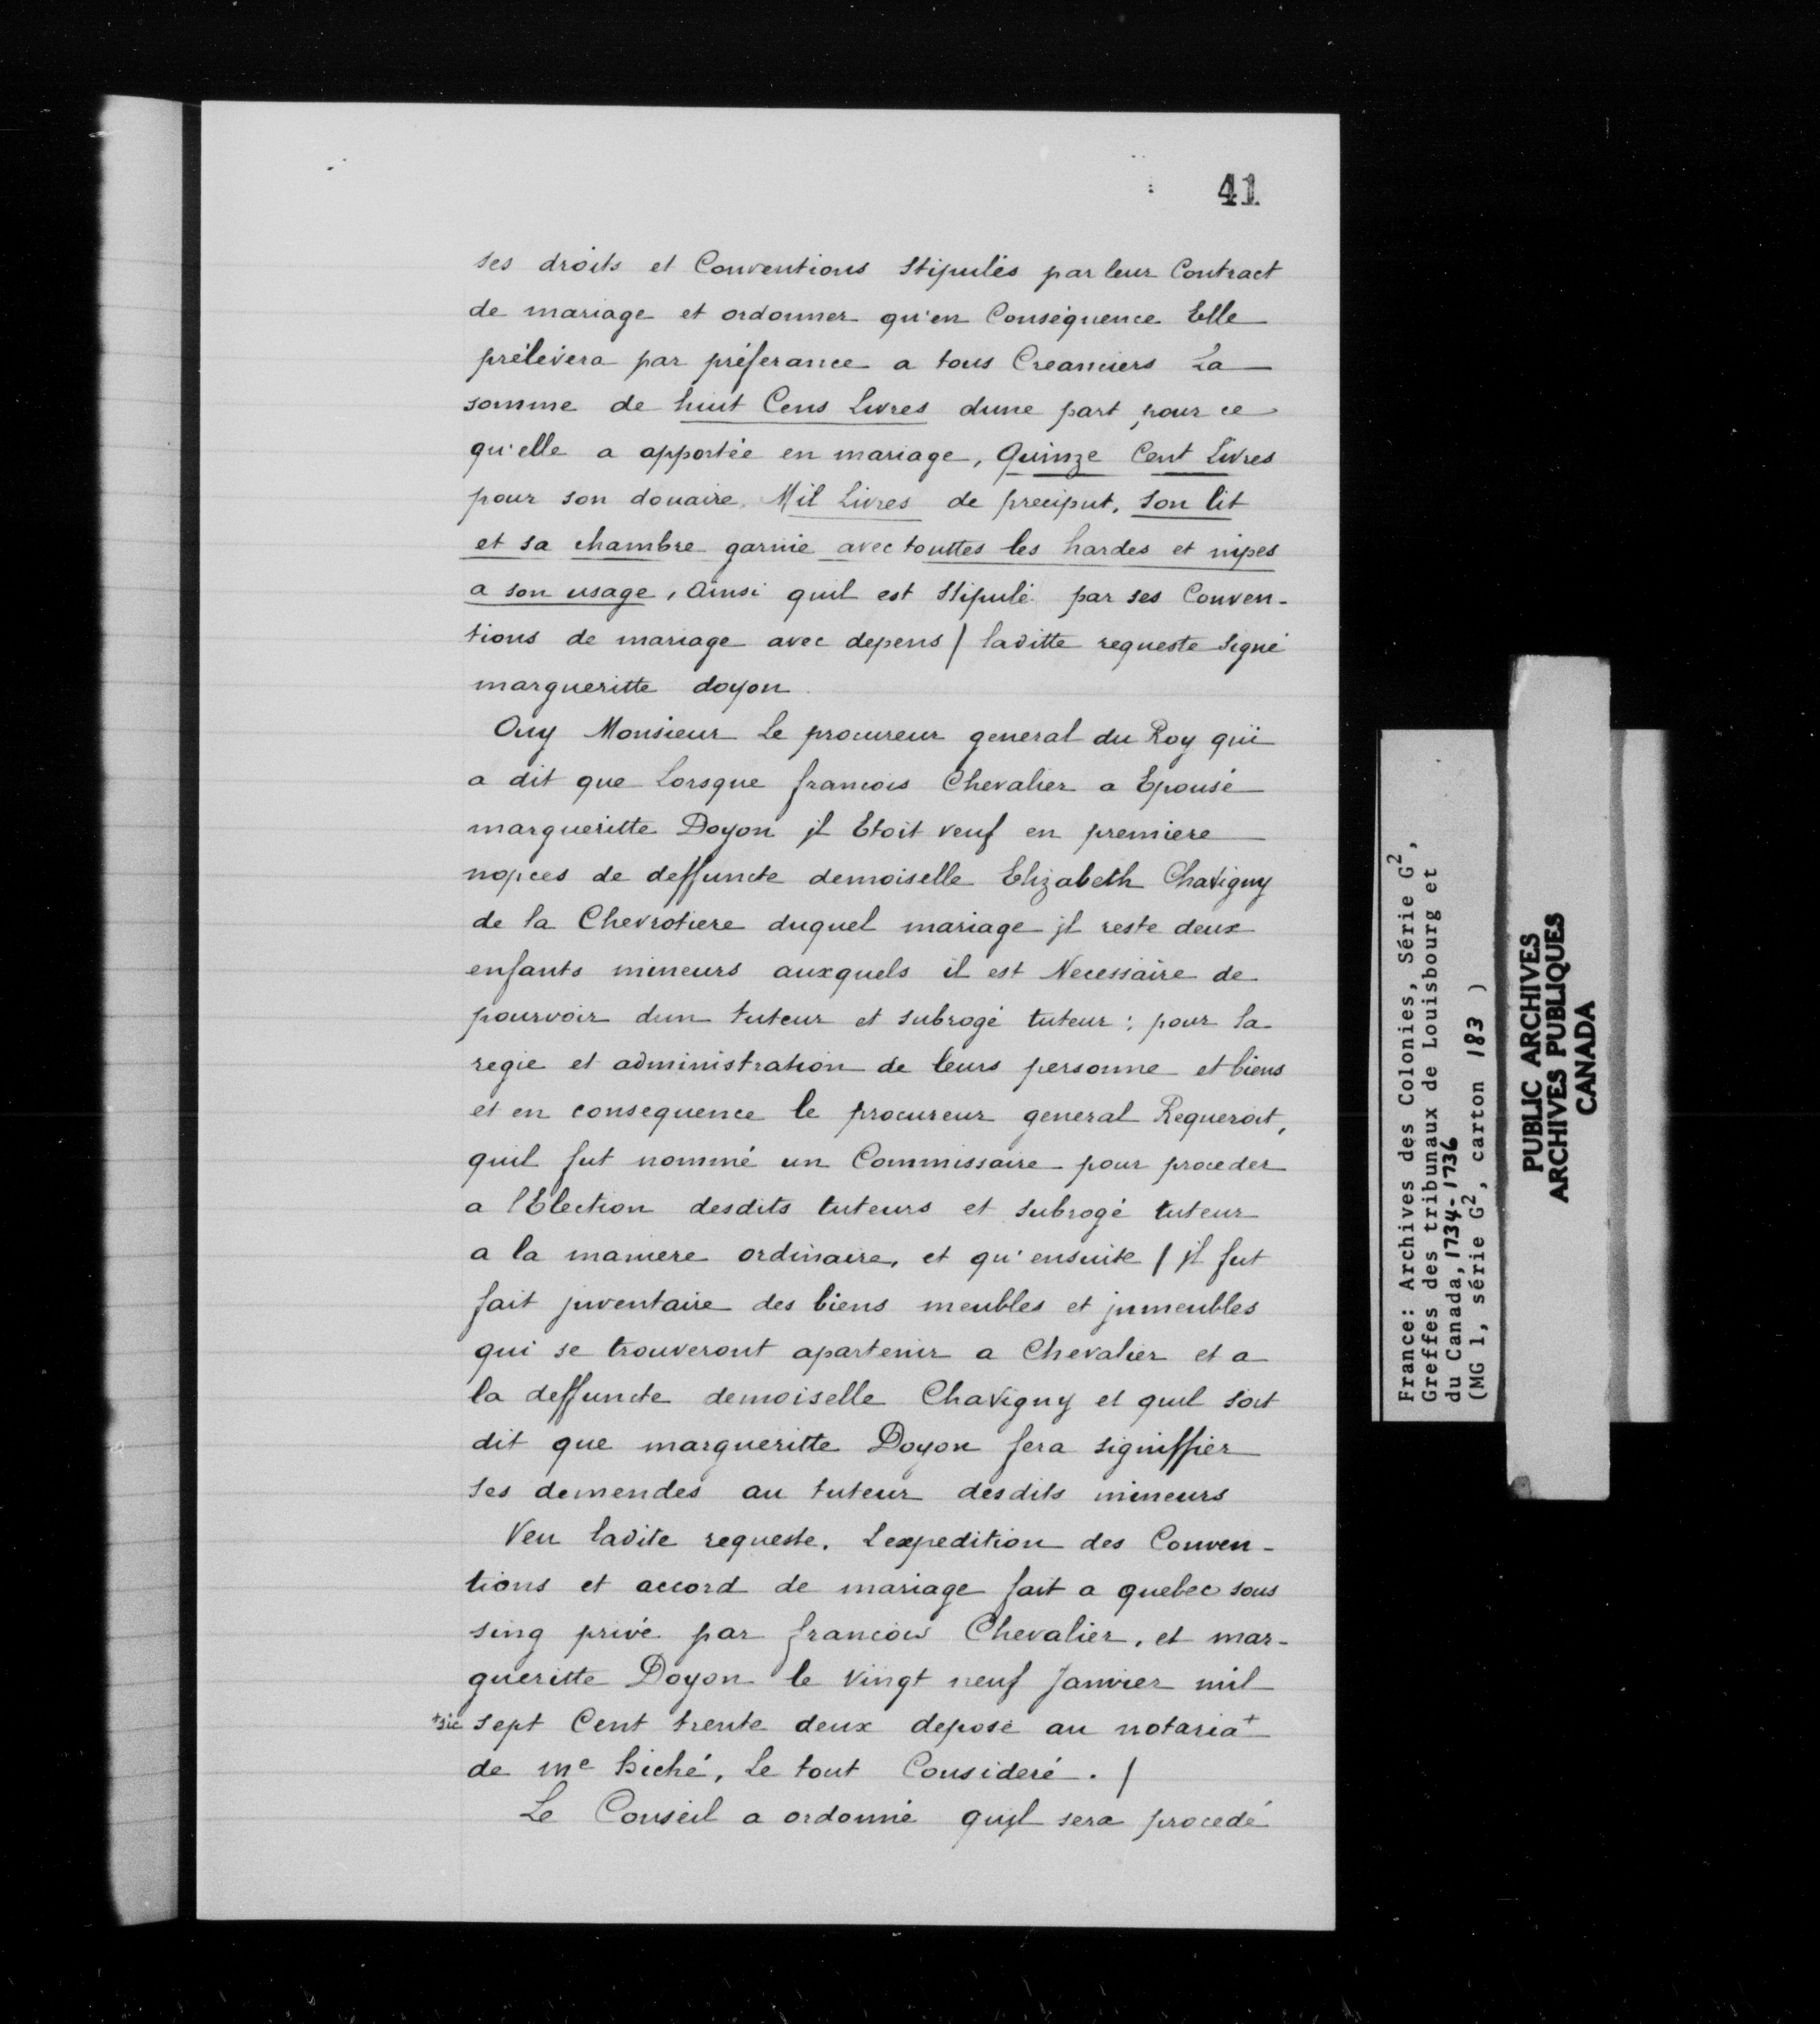 41
ses droits et Conventions Stipulés par leur Contract
de mariage et ordonner qu'en Conséquence Elle
prélévera par préferance a tous Creanciers La
somme de huit Cens Livres dune part pour ce
qu'elle a apportée en mariage, Quinze Cent Livres
pour son douaire, Mil Livres de preciput, Son lit
et sa chambre garnie avec touttes les hardes et nipes
a son usage, Ainsi quil est Stipulé par ses Conven-
tions de mariage avec depens / laditte requeste Signé
margueritte doyon
Ouy Monsieur Le procureur general du Roy qui
a dit que Lorsque francois Chevalier a Epousé
margueritte Doyon jl Etoit veuf en premiere
nopces de deffuncte demoiselle Elizabeth Chavigny
de la Chevrotiere duquel mariage jl reste deux
enfants mineurs auxquels il est Necessaire de
pourvoir dun tuteur et subrogé tuteur ; pour la
regie et administration de leurs personne et biens
et en consequence le procureur general Requeroit,
quil fut nommé un Commissaire pour proceder
a l'Election desdits tuteurs et subrogé tuteur
a la maniere ordinaire, et qu'ensuite / jl fut
fait jnventaire des biens meubles et jmmeubles
qui se trouveront apartenir a Chevalier et a
la deffuncte demoiselle Chavigny et quil soit
dit que margueritte Doyon fera signiffier
ses demendes au tuteur desdits mineurs
Veu ladite requeste, Lexpedition des Conven-
tions et accord de mariage fait a quebec sous
sing privé par francois Chevalier, et mar-
gueritte Doyon le vingt neuf Janvier mil
+sic sept Cent trente deux deposé au notaria+
de me hiché, Le tout Consideré . /
Le Conseil a ordonné quil sera procedé
France: Archives des Colonies, Série G2,
Greffes des tribunaux de Louisbourg et
du Canada, 1734-1736
(MG 1, série G2, carton 183 )
PUBLIC ARCHIVES
ARCHIVES PUBLIQUES
CANADA